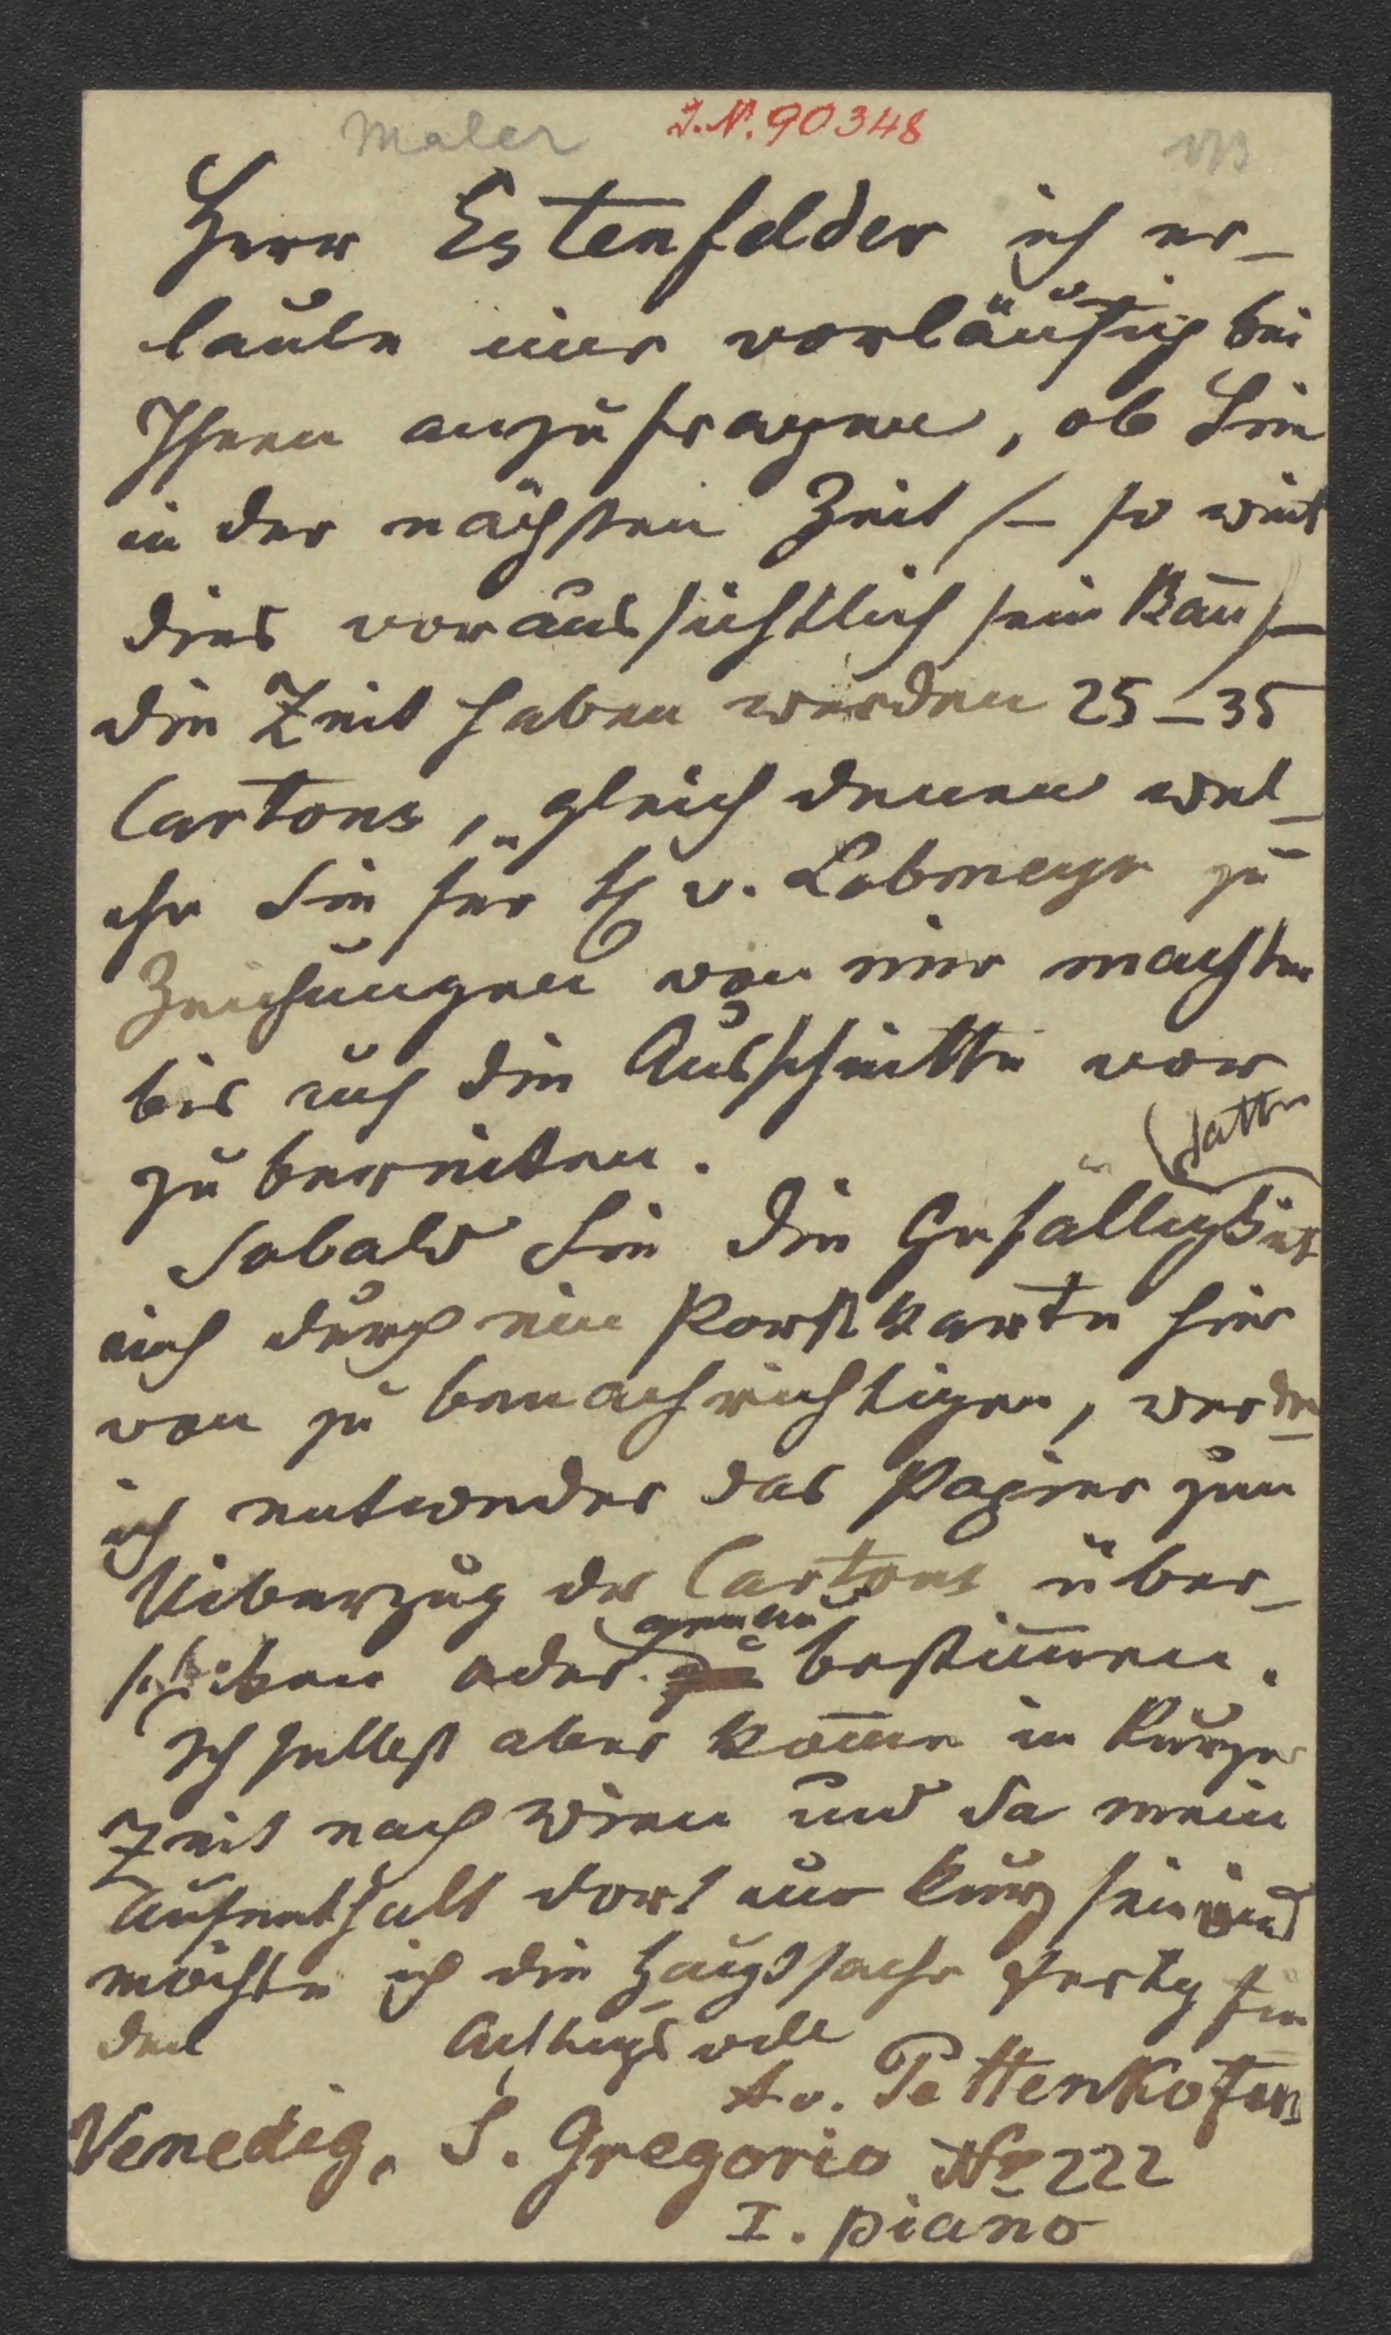 Maler J.N. 90348
Herr Estenfelder ich er–
laube mir vorläufig bei
Ihnen anzufragen, ob Sie
in der nächsten Zeit /– so weit
dies voraussichtlich sein kañ /–
die Zeit haben werden 25–35
Cartons, gleich denen wel–
che Sie für H v. Lobmeyr zu
Zeichnungen von mir machten
bis auf die Ausschnitte vor
zu bereiten.
hatten
Sobald Sie die Gefälligkeit
mich durch eine Postkarte hier
von zu benachrichtigen, werde
ich entweder das Papier zum
Uiberzug der Cartons über–
schiken oder genau bestim̄en.
Ich selbst aber kom̄e in kurzer
Zeit nach Wien und da mein
Aufenthalt dort nur kurz sein wird
möchte ich die Hauptsache fertig fin
den Achtungsvoll
A v. Pettenkofen
Venedig, S. Gregorio No 222
I. piano